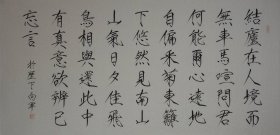 結廬在人境而
無車馬喧問君
何能爾心遠地
自偏采菊東籬
下悠然見南山
山氣日夕佳飛
鳥相與還此中
有真意欲辨已
忘言